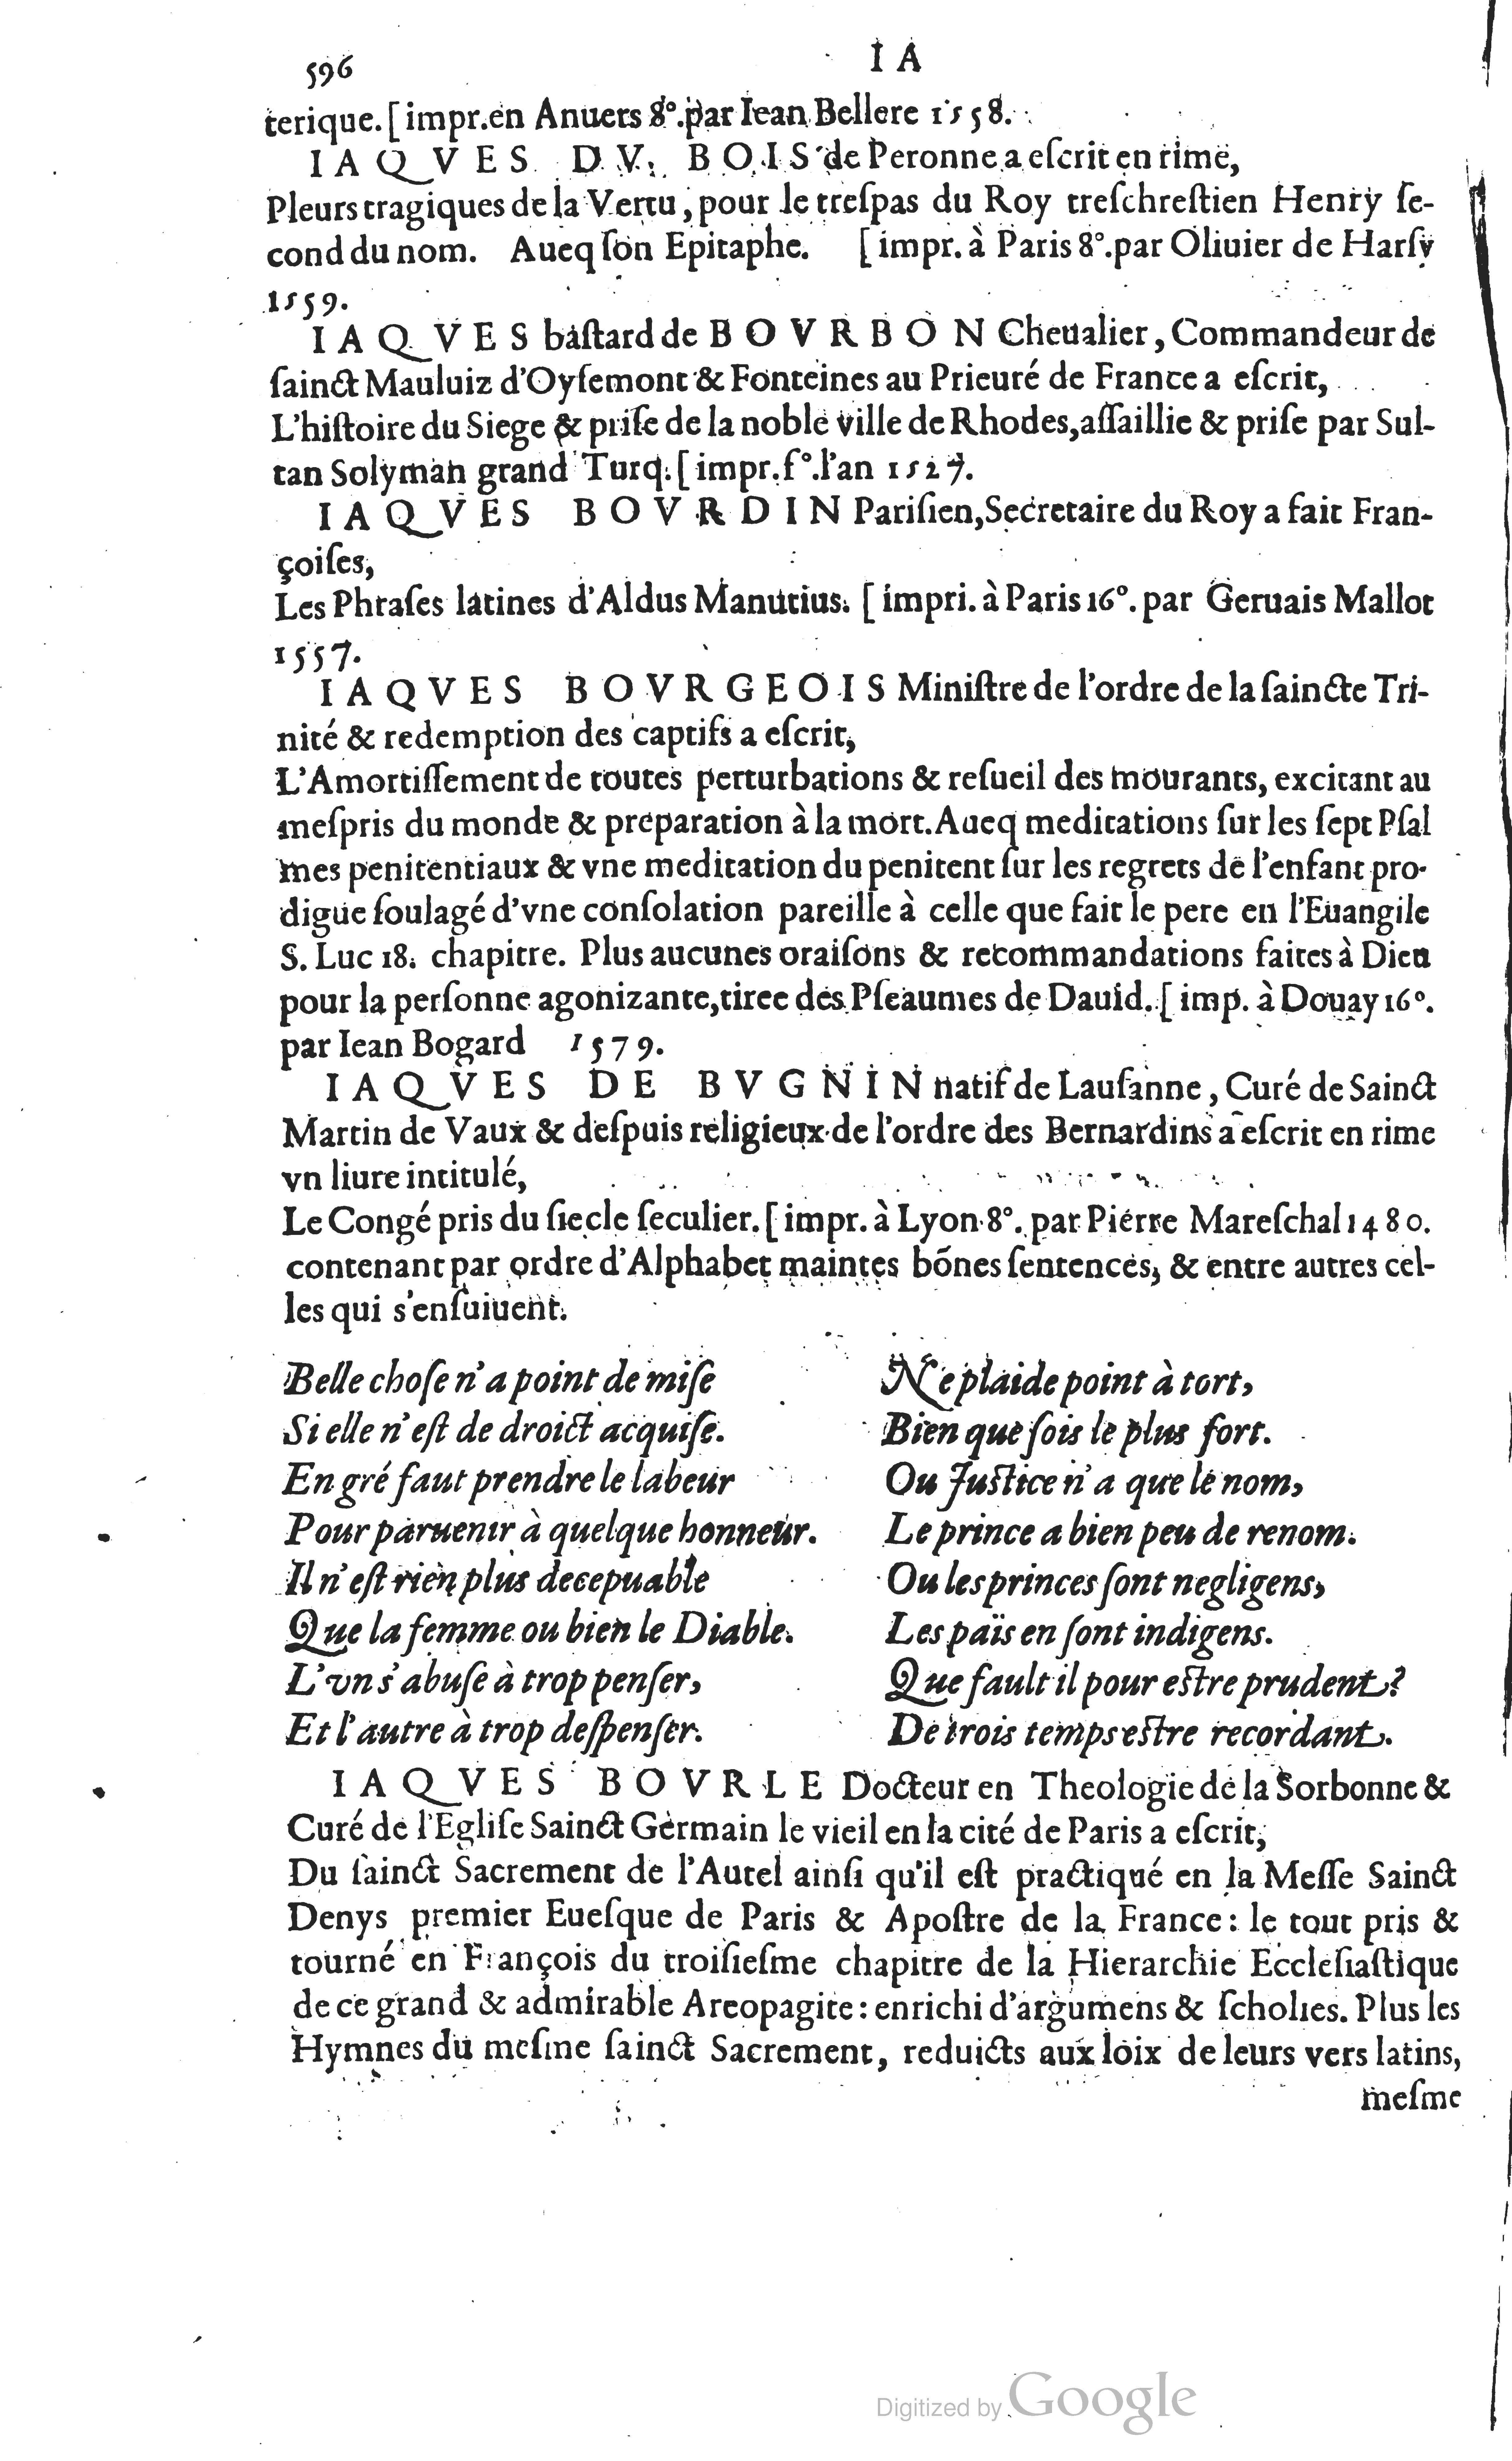 596
I A
terique. [ impr. en Anuers 8°. par Iean Bellere 1558.
I A Q V E S D V B O I S de Peronne a eſcrit en rime,
Pleurs tragiques de la Vertu, pour le treſpas du Roy treſchreſtien Henry ſe-
cond du nom. Aueq ſon Epitaphe. [ impr. à Paris 8°. par Oliuier de Harſy
1559.
I A Q V E S baſtard de B O V R B O N Cheualier, Commandeur de
ſainct Mauluiz d'Oyſemont & Fonteines au Prieuré de France a eſcrit,
L'hiſtoire du Siege & priſe de la noble ville de Rhodes, aſſaillie & priſe par Sul-
tan Solyman grand Turq. [ impr. f°. l'an 1527.
I A Q V E S B O V R D I N Pariſien, Secretaire du Roy a fait Fran-
çoiſes,
Les Phraſes latines d'Aldus Manutius. [ impri. à Paris 16°. par Geruais Mallot
1557.
I A Q V E S B O V R G E O I S Miniſtre de l'ordre de la ſaincte Tri-
nité & redemption des captifs a eſcrit,
L'Amortiſſement de toutes perturbations & reſueil des mourants, excitant au
meſpris du monde & preparation à la mort. Aueq meditations ſur les ſept Pſal
mes penitentiaux & vne meditation du penitent ſur les regrets de l'enfant pro-
digue ſoulagé d'vne conſolation pareille à celle que fait le pere en l'Euangile
S. Luc 18. chapitre. Plus aucunes oraiſons & recommandations faites à Dieu
pour la perſonne agonizante, tiree des Pſeaumes de Dauid. [ imp. à Douay 16°.
par Iean Bogard 1579.
I A Q V E S D E B V G N I N natif de Lauſanne, Curé de Sainct
Martin de Vaux & deſpuis religieux de l'ordre des Bernardins a eſcrit en rime
vn liure intitulé,
Le Congé pris du ſiecle ſeculier. [ impr. à Lyon 8°. par Pierre Mareſchal 1480.
contenant par ordre d'Alphabet maintes bónes ſentences, & entre autres cel-
les qui s'enſuiuent.
Belle choſe n'a point de miſe
Si elle n'eſt de droict acquiſe.
En gré faut prendre le labeur
Pour paruenir à quelque honneur.
Il n'eſt rien plus decepuable
Que la femme ou bien le Diable.
L'vn s'abuſe à trop penſer,
Et l'autre à trop deſpenſer.
Ne plaide point à tort,
Bien que ſois le plus fort.
Ou Juſtice n'a que le nom,
Le prince a bien peu de renom.
Ou les princes ſont negligens,
Les païs en ſont indigens.
Que fault il pour eſtre prudent?
De trois temps eſtre recordant.
I A Q V E S B O V R L E Docteur en Theologie de la Sorbonne &
Curé de l'Egliſe Sainct Germain le vieil en la cité de Paris a eſcrit,
Du ſainct Sacrement de l'Autel ainſi qu'il eſt practiqué en la Meſſe Sainct
Denys premier Eueſque de Paris & Apoſtre de la France: le tout pris &
tourné en François du troiſieſme chapitre de la Hierarchie Eccleſiaſtique
de ce grand & admirable Areopagite: enrichi d'argumens & ſcholies. Plus les
Hymnes du meſme ſainct Sacrement, reduicts aux loix de leurs vers latins,
meſme
Digitized by Google